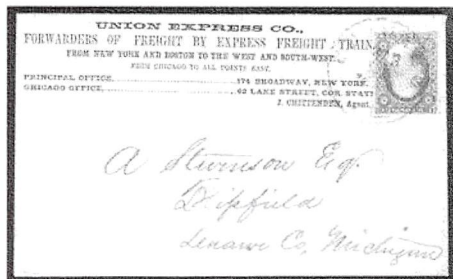 UNION EXPRESS CO.,
FORWARDERS OF FREIGHT BY EXPRESS FREIGHT TRAIN,
FROM NEW YORK AND BOSTON TO THE WEST AND SOUTH-WEST.
FROM CHICAGO TO ALL POINTS EAST.
PRINCIPAL OFFICE, 174 BROADWAY, NEW YORK.
CHICAGO OFFICE, 62 LAKE STREET, COR. STATE
J. CHITTENDEN, Agent.
A Stevenson Esq.
Lenawe Co, Michigan